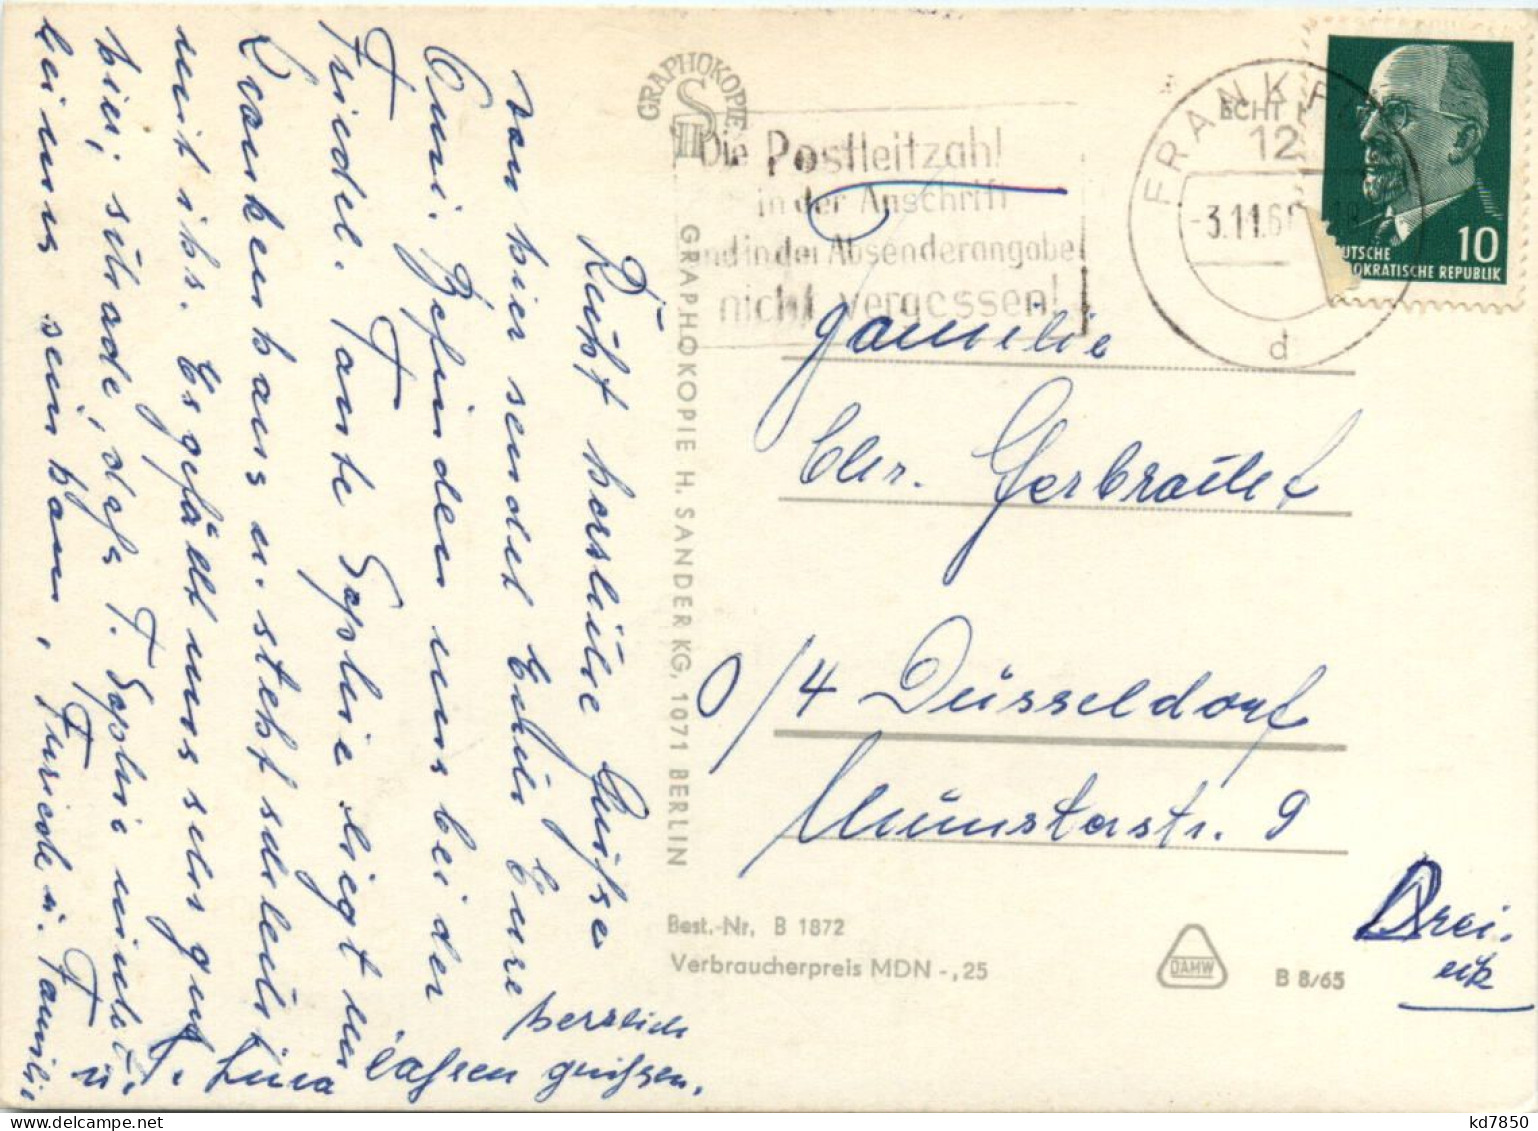 Recht herzliche Grüße
von hier sendet Euch Eure
Omi. Befinden uns bei der
Friedel. Tante Sophie liegt im
Krankenhaus u. steht schlecht
mit ihr. Es gefällt uns sehr gut
hier, schade, daß T. Sophie nicht
bei uns sein kann,
Familie
u. T. Lina lassen herzlich
grüßen.
GRAPHOKOPIE
H S
GRAPHOKOPIE H. SANDER KG, 1071 BERLIN
Die Postleitzahl
in der Anschrift
und in der Absenderangabe
nicht vergessen!
FRANKF
ECHT
12
-3.11.6
18
d
10
DEUTSCHE
DEMOKRATISCHE REPUBLIK
Familie
Chr. Gerbracht
0/4 Düsseldorf
Münsterstr. 9
Best.-Nr. B 1872
Verbraucherpreis MDN -,25
DAMW
B 8/65
Drei.
eck
kd7850